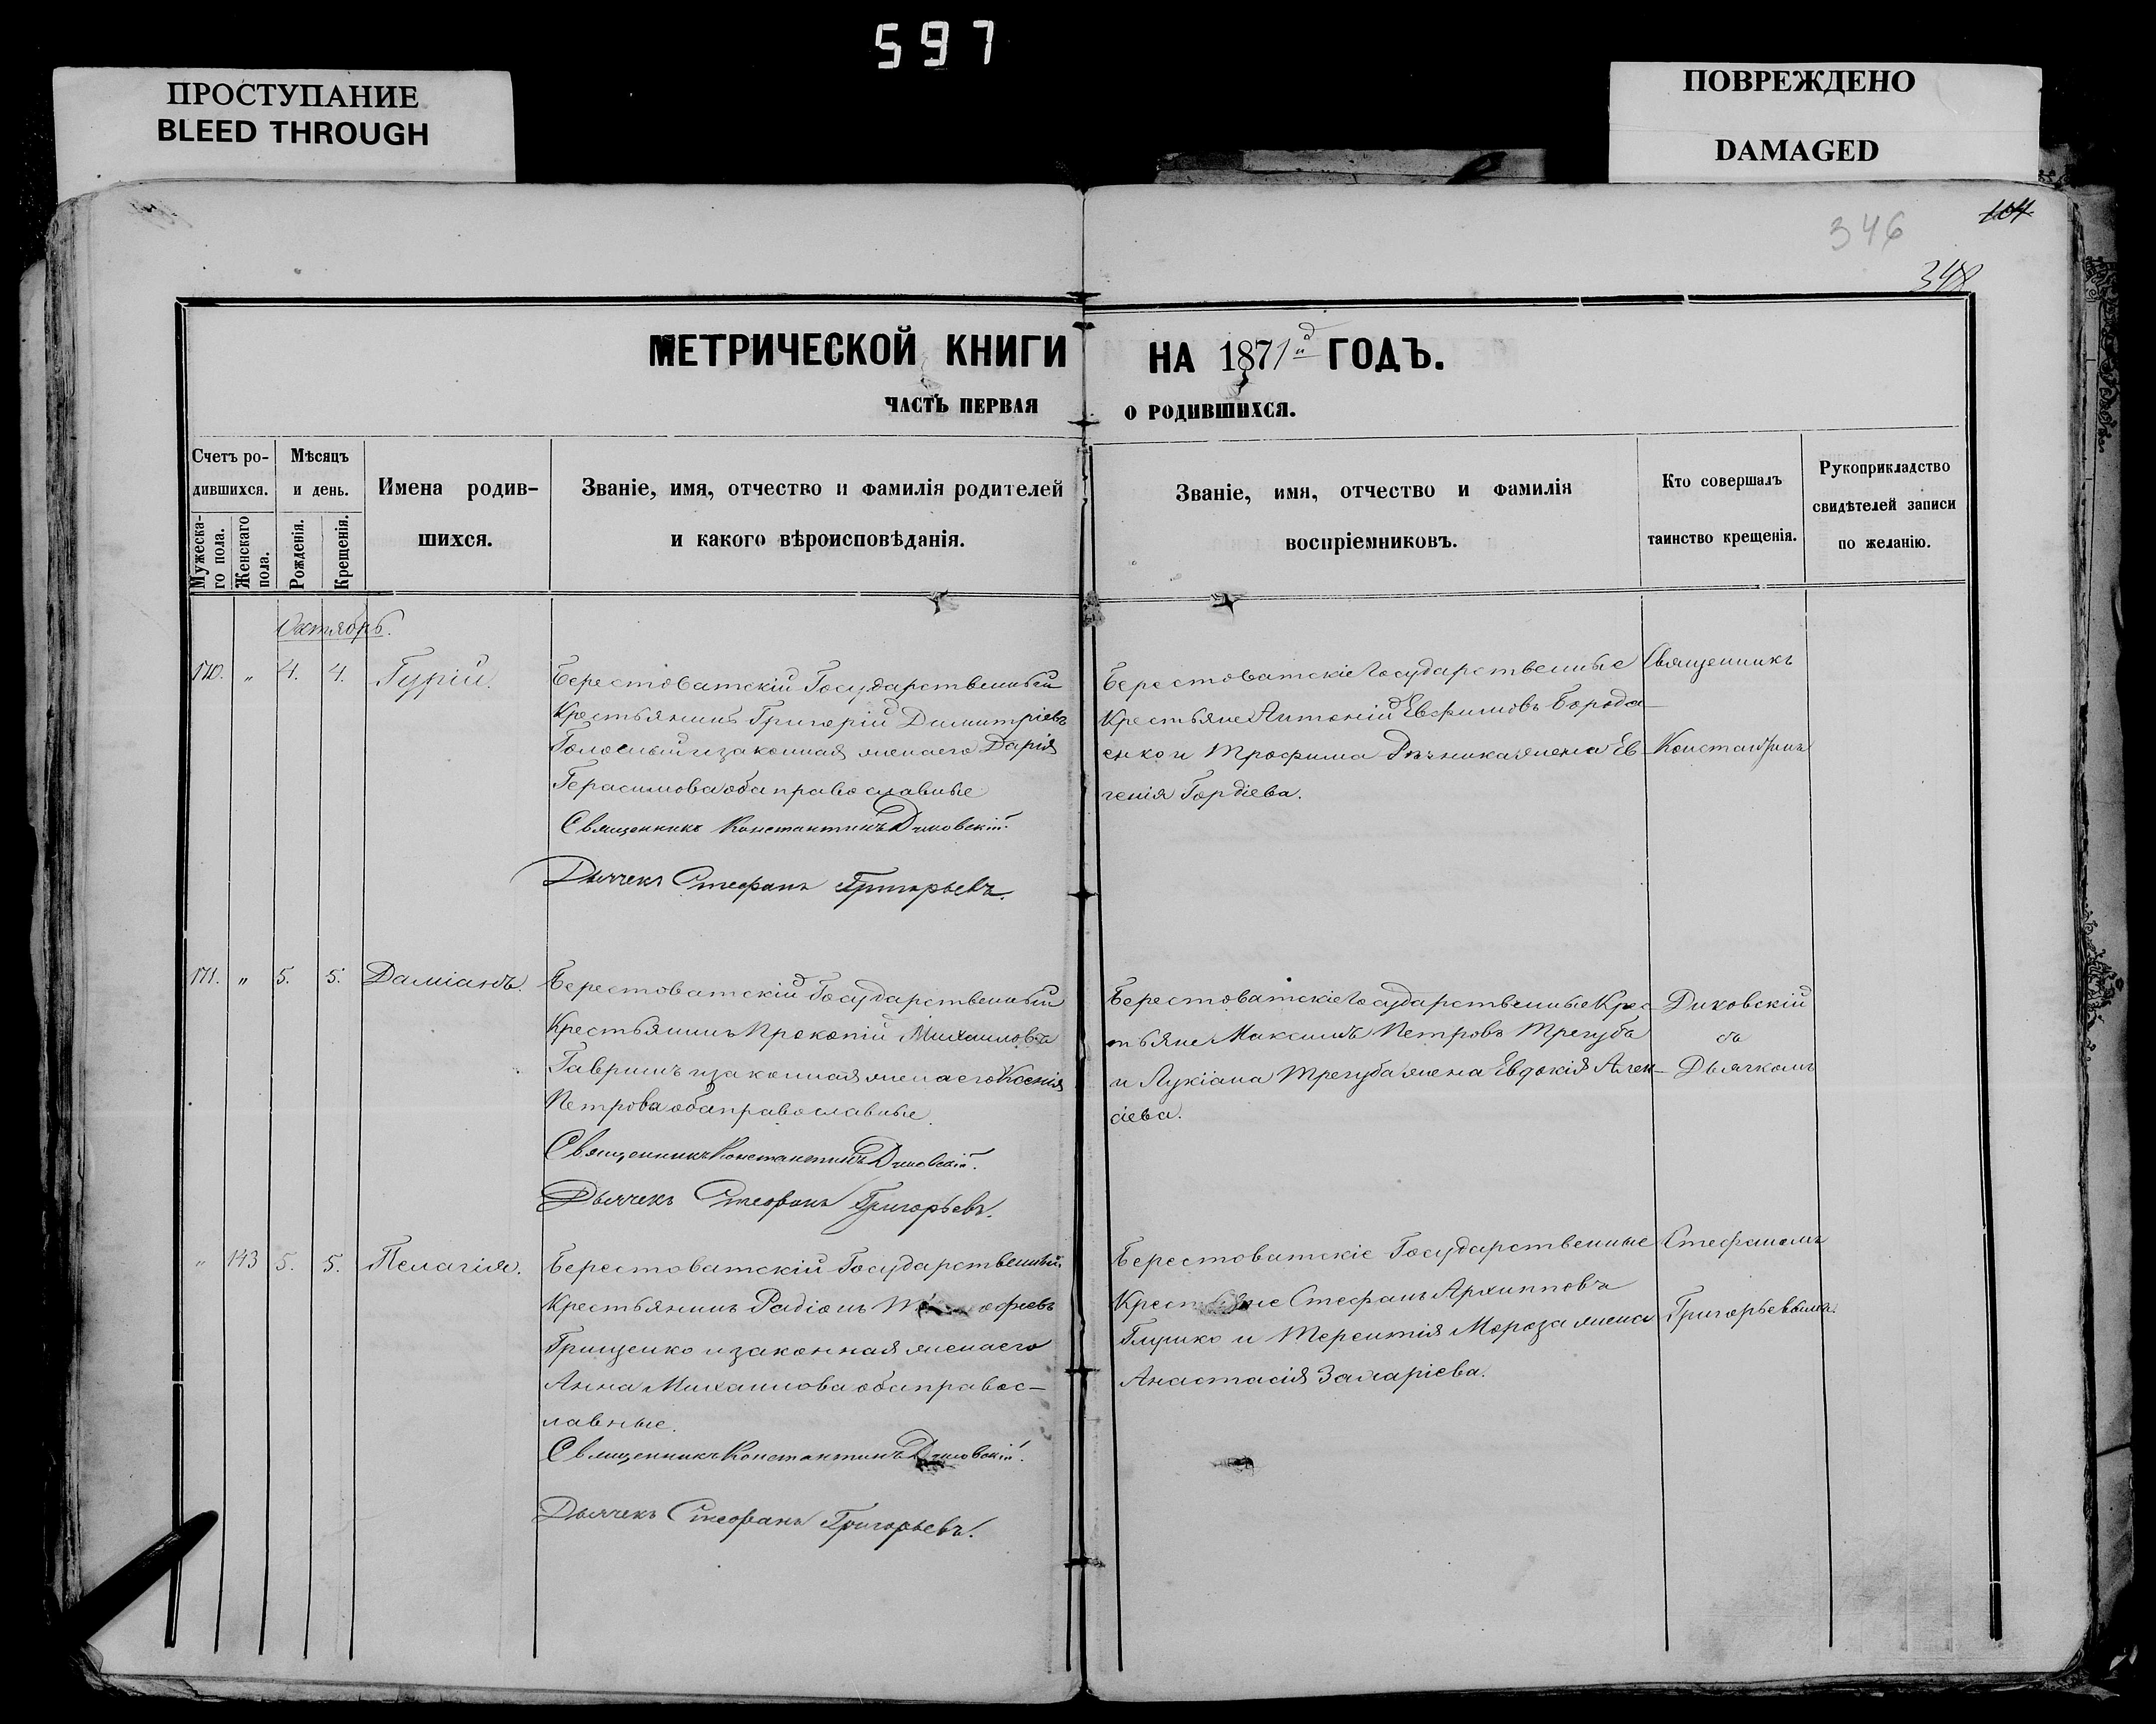 597
ПРОСТУПАНИЕ
BLEED THROUGH
ПОВРЕЖДЕНО
DAMAGED
346
348
МЕТРИЧЕСКОЙ КНИГИ НА 1871й ГОДЪ.
ЧАСТЬ ПЕРВАЯ О РОДИВШИХСЯ.
Счетъ ро-
дившихся.
Мужеска-
го пола.
Женскаго
пола.
Мѣсяцъ
и день.
Рожденія.
Крещенія.
Имена родив-
шихся.
Званіе, имя, отчество и фамилія родителей
и какого вѣроисповѣданія.
Званіе, имя, отчество и фамилія
воспріемниковъ.
Кто совершалъ
таинство крещенія.
Рукоприкладство
свидѣтелей записи
по желанію.
Октябрь.
170. " 4. 4. Гурій.
Берестоватскій Государственный
Крестьянинъ Григорій Димитріевъ
и законная жена его Дарія
Герасимова оба православные
Священникъ Константинъ Диковскій.
Дьячекъ Стефанъ Григорьевъ.
Берестоватскіе Государственные
Крестьяне Антоній Евфимовъ Борода-
енко и Трофима Рѣзника жена Ев-
генія Гордіева.
Священникъ
Константинъ
171. " 5. 5. Даміанъ.
Берестоватскій Государственный
Крестьянинъ Прокопій Михаиловъ
Гавришъ и законная жена его Ксенія
Петрова оба православные.
Священникъ Константинъ Диковскій.
Дьячекъ Стефанъ Григорьевъ.
Берестоватскіе Государственные Крес-
тьяне Максимъ Петровъ Трегубъ
и Лукіана Трегуба жена Евдокія Алек-
сіева.
Диковскій
съ
Дьячкомъ
" 143 5. 5. Пелагія.
Берестоватскій Государственный
Крестьянинъ Радіонъ
Грищенко и законная жена его
Анна Михаилова оба правос-
лавные.
Священникъ Константинъ Диковскій.
Дьячекъ Стефанъ Григорьевъ.
Берестоватскіе Государственные
Крестьяне Стефанъ Архиповъ
Глушко и Терентія Мороза жена
Анастасія Захаріева.
Стефаномъ
Григорьевымъ.